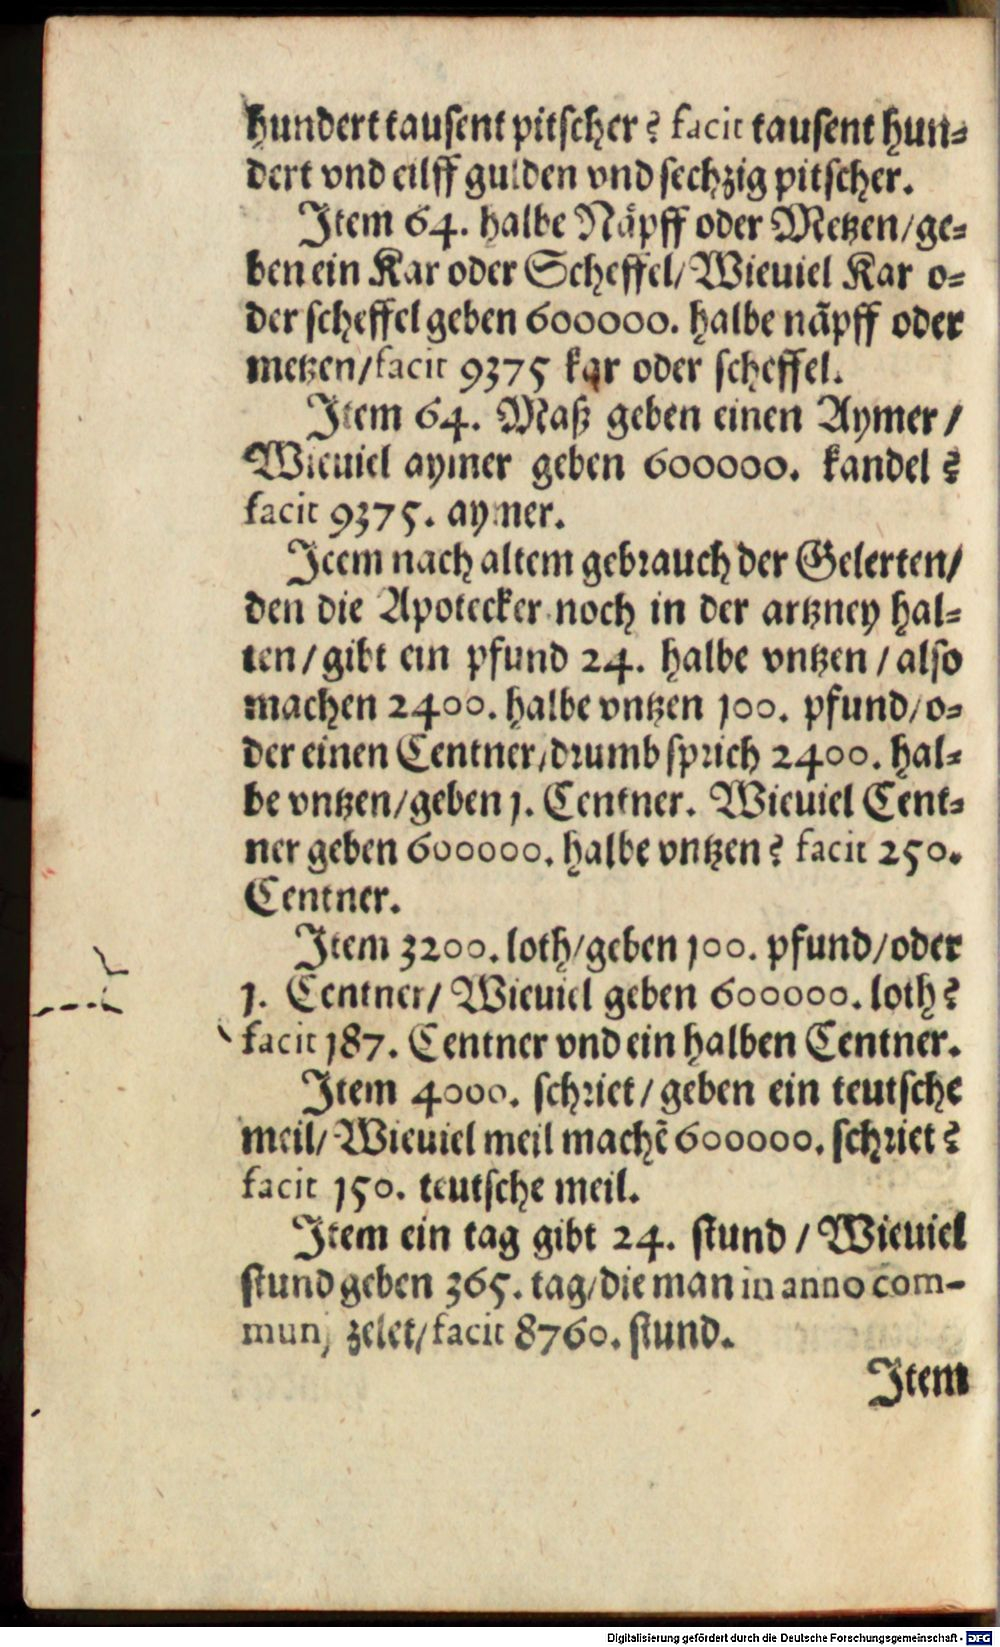 hundert tausent pitscher? facit tausent hun-
dert vnd eilff gulden vnd sechzig pitscher.
Item 64. halbe Näpff oder Metzen/ge-
ben ein Kar oder Scheffel/Wieuiel Kar o-
der scheffel geben 600000. halbe näpff oder
metzen/facit 9375 kar oder scheffel.
Item 64. Maß geben einen Aymer/
Wieuiel aymer geben 600000. kandel?
facit 9375. aymer.
Item nach altem gebrauch der Gelerten/
den die Apotecker noch in der artzney hal-
ten/gibt ein pfund 24. halbe vntzen/also
machen 2400. halbe vntzen 100. pfund/o-
der einen Centner/drumb sprich 2400. hal-
be vntzen/geben 1. Centner. Wieuiel Cent-
ner geben 600000. halbe vntzen? facit 250.
Centner.
Item 3200. loth/geben 100. pfund/oder
1. Centner/Wieuiel geben 600000. loth?
facit 187. Centner vnd ein halben Centner.
Item 4000. schriet/geben ein teutsche
meil/Wieuiel meil machē 600000. schriet?
facit 150. teutsche meil.
Item ein tag gibt 24. stund/Wieuiel
stund geben 365. tag/die man in anno com-
muni zelet/facit 8760. stund.
Item
Digitalisierung gefördert durch die Deutsche Forschungsgemeinschaft - DFG